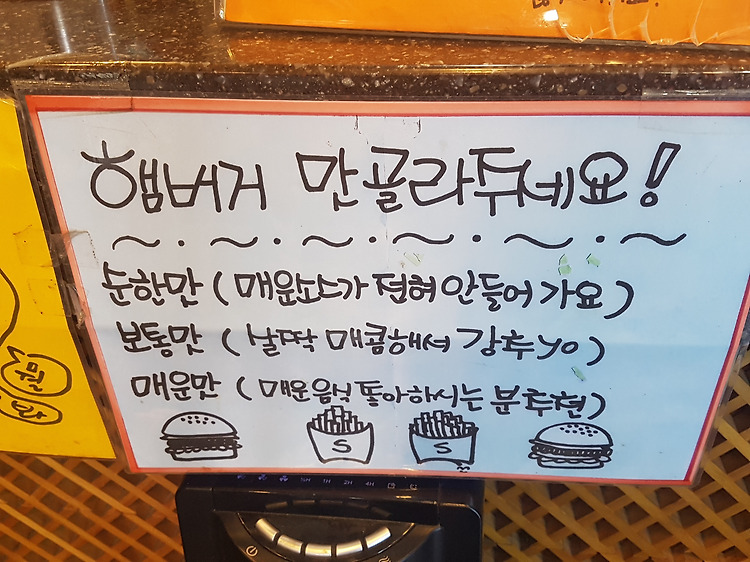 햄버거 맛골라주세요!
순한맛 (매운소스가 전혀 안들어가요)
보통맛 (살짝 매콤해서 강추yo)
매운맛 (매운음식 좋아하시는 분 추천)
S S
1H 2H 4H